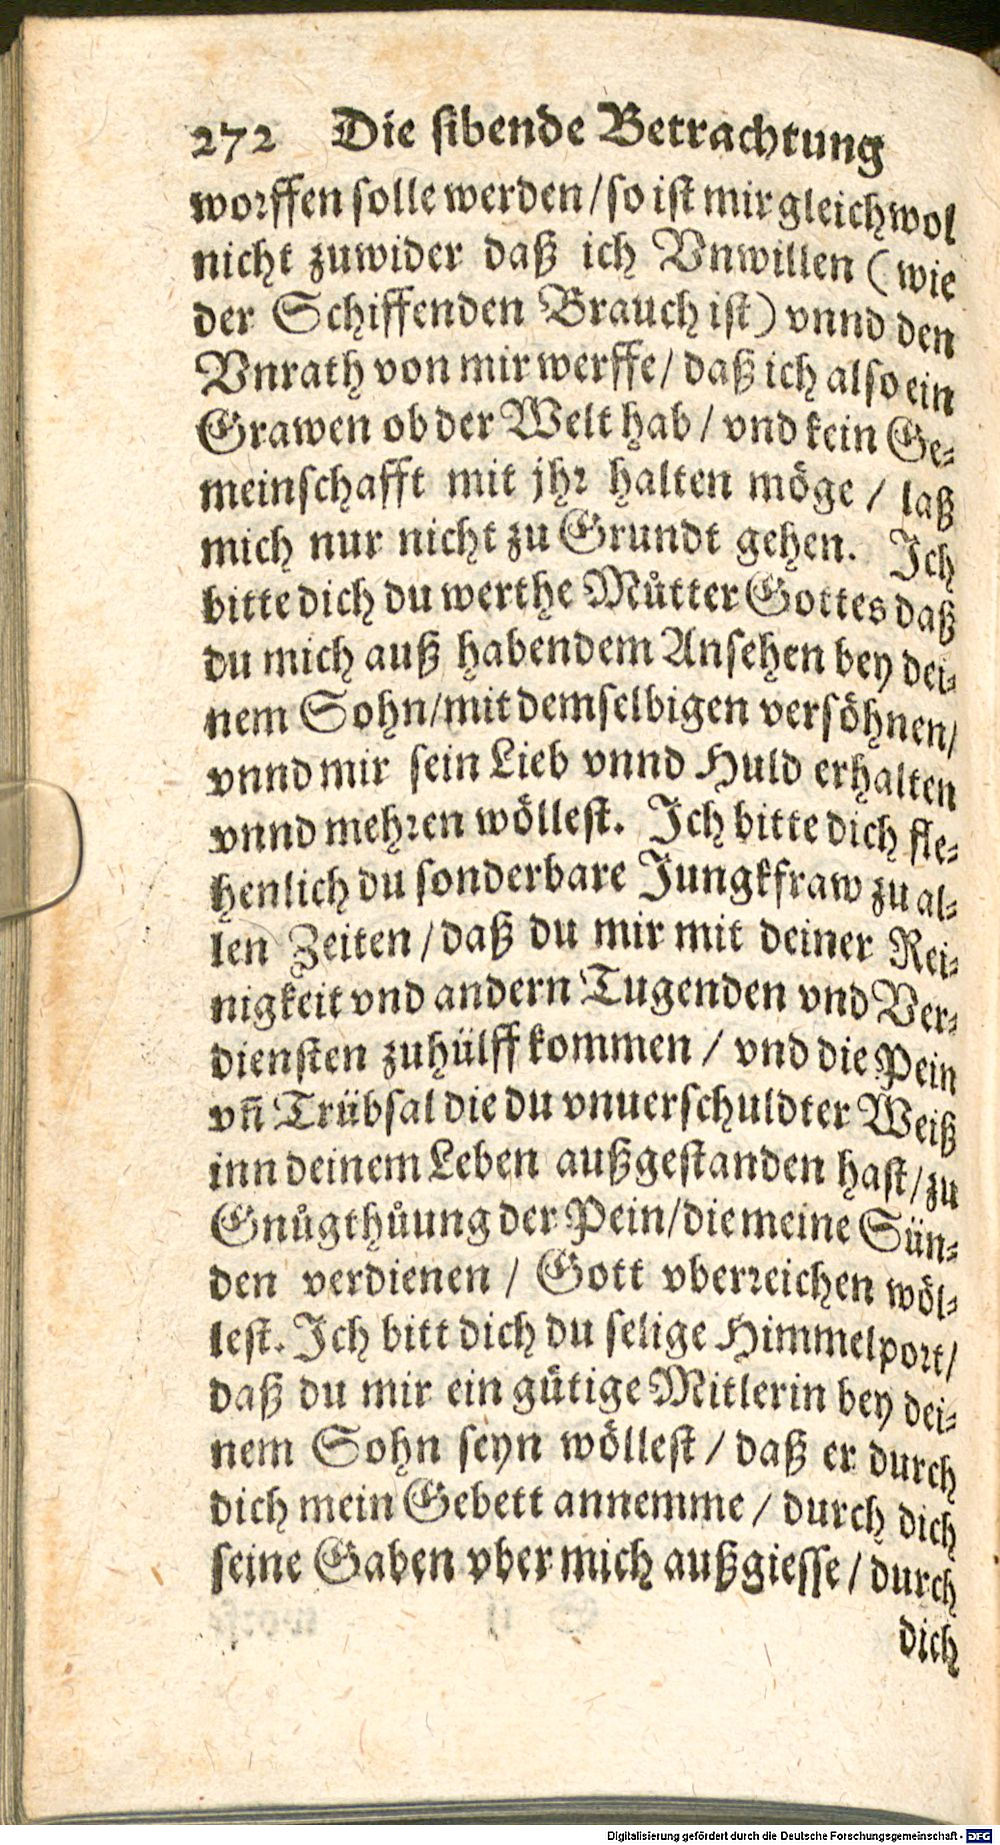 272 Die sibende Betrachtung
worffen solle werden / so ist mir gleichwol
nicht zuwider daß ich Vnwillen ( wie
der Schiffenden Brauch ist ) vnnd den
Vnrath von mir werffe / daß ich also ein
Grawen ob der Welt hab / vnd kein Ge-
meinschafft mit jhr halten möge / laß
mich nur nicht zu Grundt gehen. Ich
bitte dich du werthe Můtter Gottes daß
du mich auß habendem Ansehen bey dei-
nem Sohn / mit demselbigen versöhnen /
vnnd mir sein Lieb vnnd Huld erhalten
vnnd mehren wöllest. Ich bitte dich fle-
henlich du sonderbare Jungkfraw zu al-
len Zeiten / daß du mir mit deiner Rei-
nigkeit vnd andern Tugenden vnd Ver-
diensten zuhülff kommen / vnd die Pein
vñ Trübsal die du vnuerschuldter Weiß
inn deinem Leben außgestanden hast / zu
Gnůgthůung der Pein / die meine Sün-
den verdienen / Gott vberreichen wöl-
lest. Ich bitt dich du selige Himmelport /
daß du mir ein gütige Mitlerin bey dei-
nem Sohn seyn wöllest / daß er durch
dich mein Gebett annemme / durch dich
seine Gaben vber mich außgiesse / durch
dich
Digitalisierung gefördert durch die Deutsche Forschungsgemeinschaft - DFG